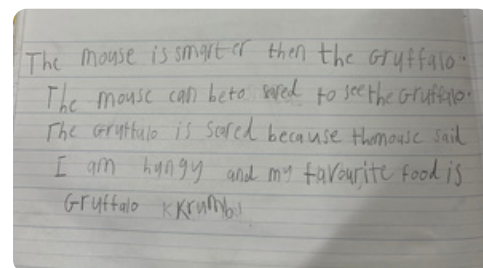 The mouse is smarter then the Gruffalo.
The mouse can beto sared to see the Gruffalo.
The Gruffalo is scared because themouse said
I am hungy and my favourite food is
Gruffalo kkrumbs